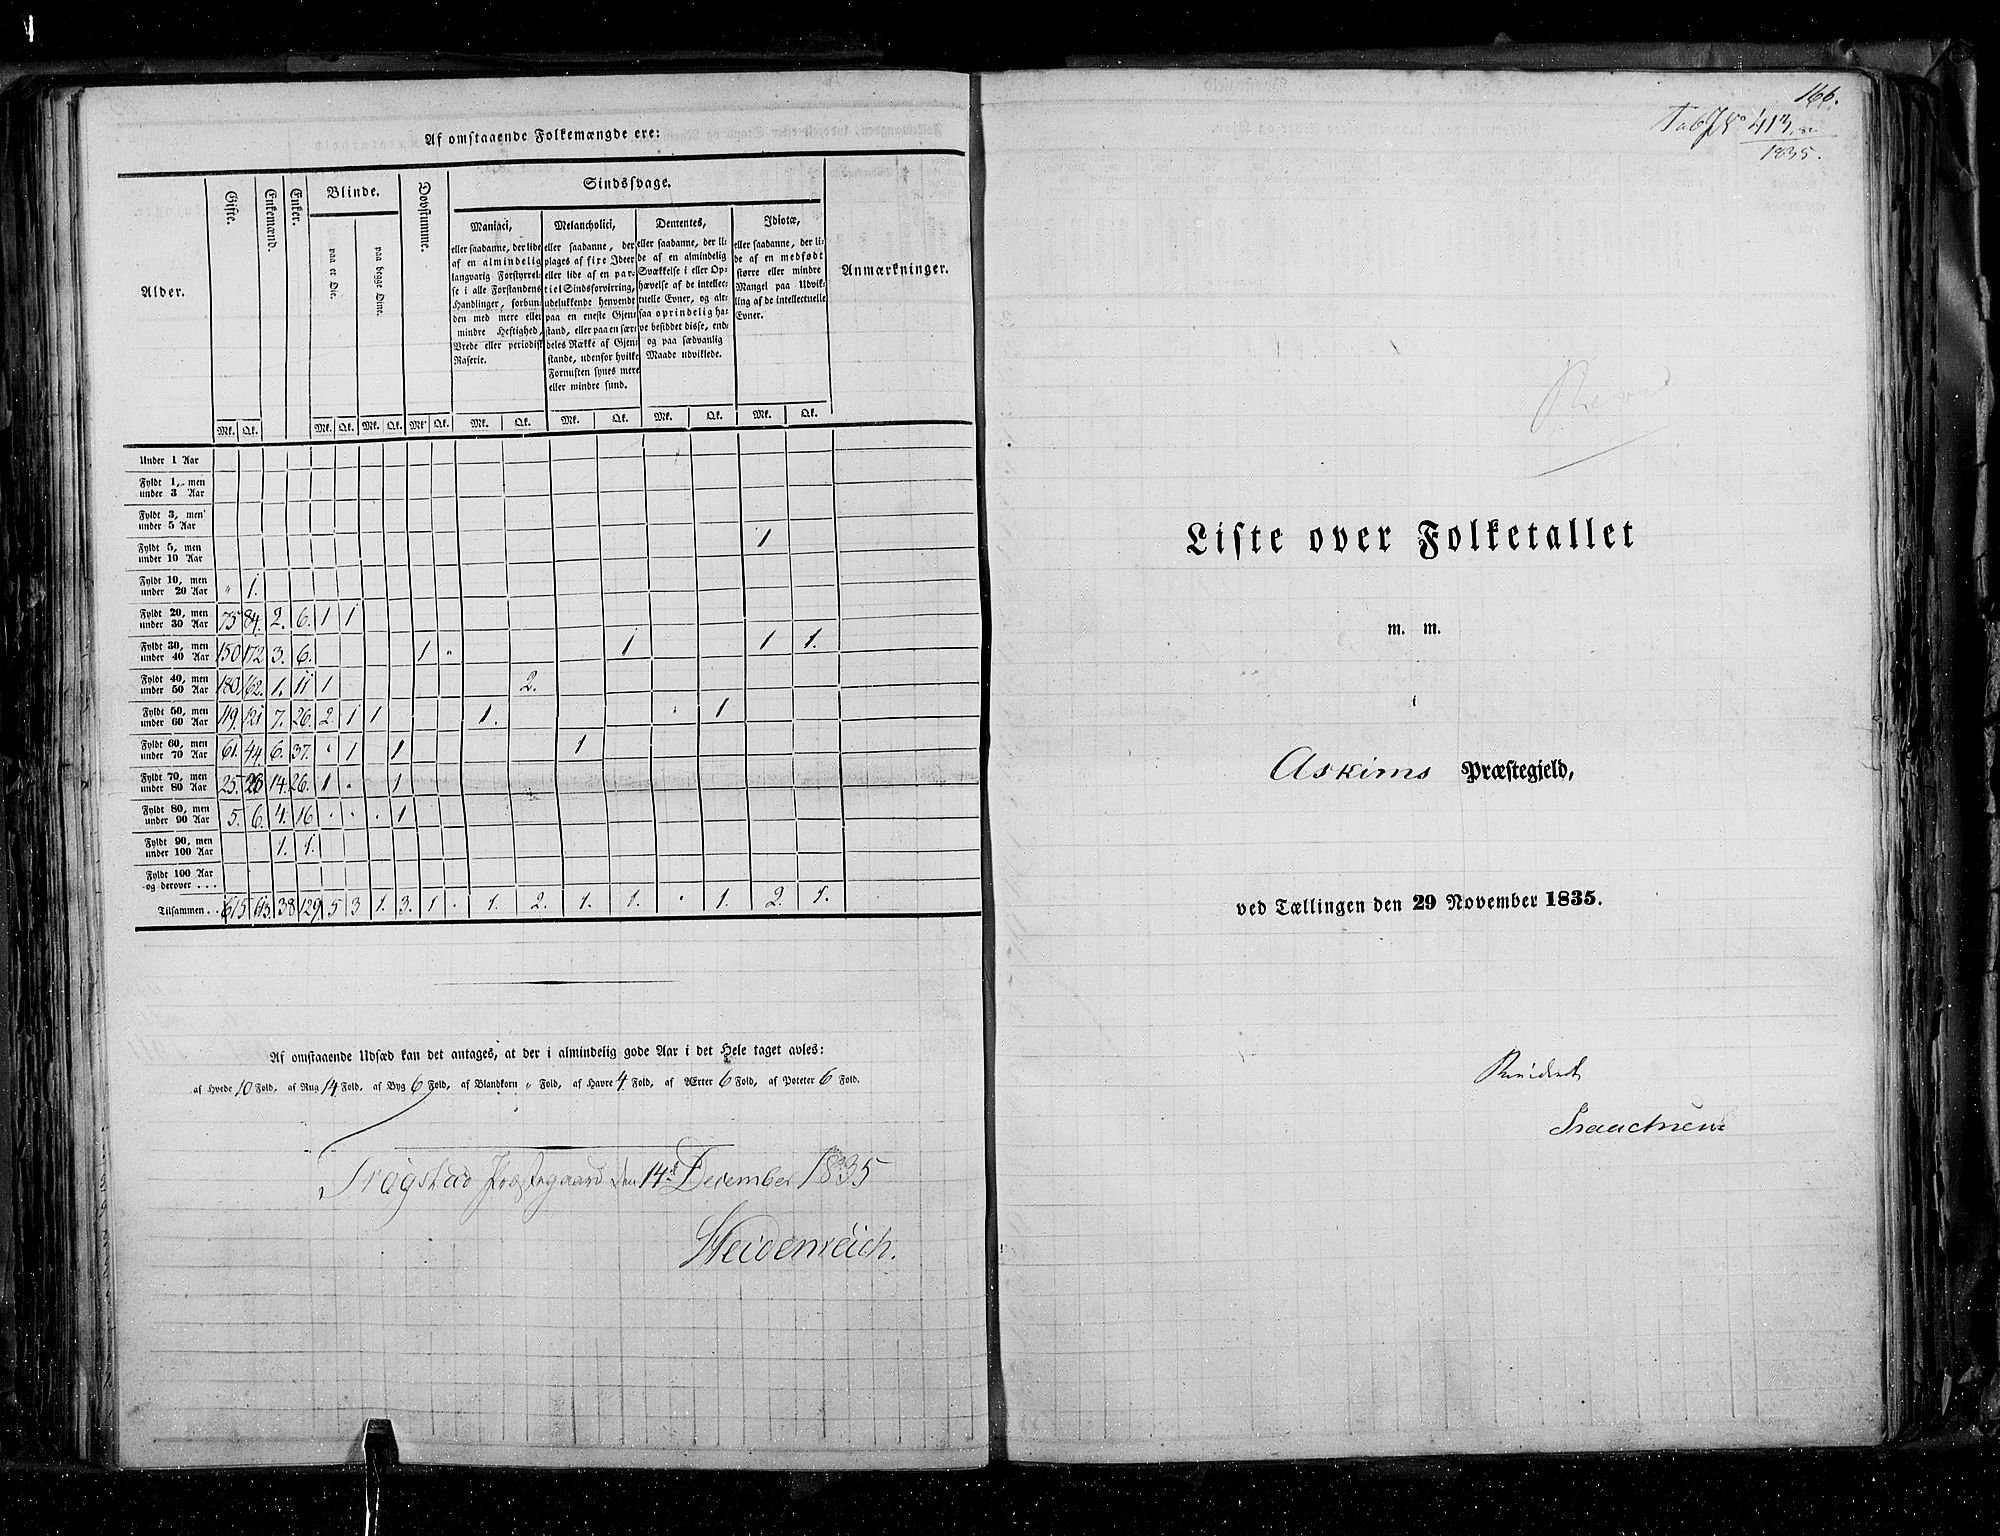 Af omstaaende Folkemængde ere:
Alder. Gifte. Enkemænd. Enker. Blinde. Døvstumme. Sindssvage. Anmærkninger.
paa et Øie. paa begge Øine.
Maniaci,
eller saadanne, der lide
af en almindelig
langvarig Forstyrrel-
se i alle Forstandens
Handlinger, forbun-
den med mere eller
mindre Heftighed,
Vrede eller periodisk
Raserie.
Melancholici,
eller saadanne, der
plages af fixe Ideer
eller lide af en par-
tiel Sindsforvirring,
udelukkende henvendt
paa en eneste Gjen-
stand, eller paa en sær-
deles Række af Gjen-
stande, udenfor hvilke
Fornuften synes mere
eller mindre sund.
Dementes,
eller saadanne, der li-
de af en almindelig
Svækkelse i eller Op-
hævelse af de intellec-
tuelle Evner, og alt-
saa oprindelig ha-
ve besiddet disse, end-
og paa sædvanlig
Maade udviklede.
Idiotæ,
eller saadanne, der li-
de af en medfødt
større eller mindre
Mangel paa Udvik-
ling af de intellectuelle
Evner.
Mk. Qk. Mk. Qk. Mk. Qk. Mk. Qk. Mk. Qk. Mk. Qk. Mk. Qk. Mk. Qk.
Under 1 Aar
Fyldt 1, men
under 3 Aar
Fyldt 3, men
under 5 Aar
Fyldt 5, men
under 10 Aar 1
Fyldt 10, men
under 20 Aar " 1.
Fyldt 20, men
under 30 Aar 75 84. 2. 6. 1 1
Fyldt 30, men
under 40 Aar 150 172 3. 6. 1 " 1 1 1.
Fyldt 40, men
under 50 Aar 180 162. 1. 11 1 2.
Fyldt 50, men
under 60 Aar 119. 121 7. 26. 2 1 1 1. " 1
Fyldt 60, men
under 70 Aar 61. 44 6. 37. " 1 1 1
Fyldt 70, men
under 80 Aar 25. 26 14. 26. 1 " 1
Fyldt 80, men
under 90 Aar 5. 6. 4. 16 " " " 1
Fyldt 90, men
under 100 Aar 1. 1.
Fyldt 100 Aar
og derover . . .
Tilsammen . . 615 613. 38 129 5 3 1. 3. 1 " 1. 2. 1. 1. " 1. 2. 1.
Af omstaaende Udsæd kan det antages, at der i almindelig gode Aar i det Hele taget avles:
af Hvede 10 Fold, af Rug 14 Fold, af Byg 6 Fold, af Blandkorn " Fold, af Havre 4 Fold, af Ærter 6 Fold, af Poteter 6 Fold.
Trøgstad Præstegaard den 14de December 1835
Heidenreich.
166.
Tab J No 413
1835.
Liste over Folketallet
m. m.
i
Askims Præstegjeld,
ved Tællingen den 29 November 1835.